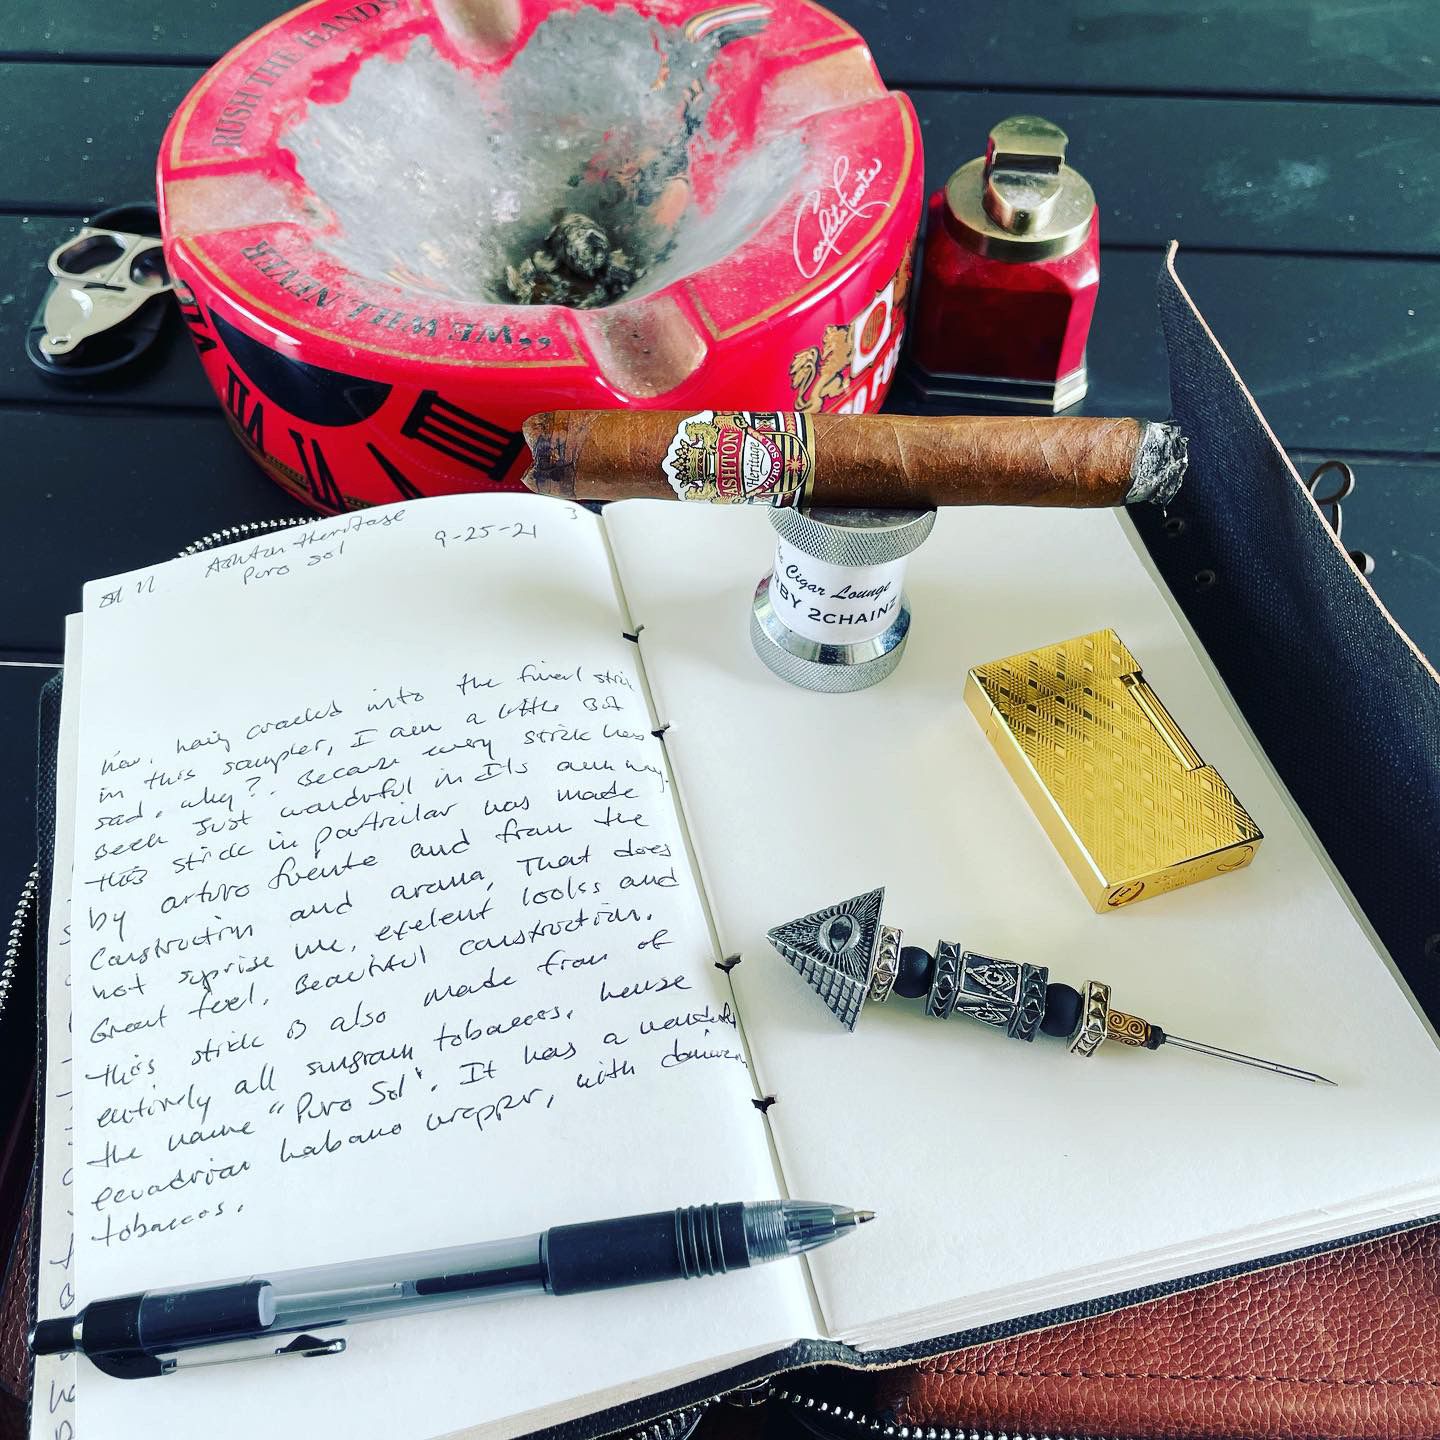 RUSH THE HANDS
"WE WILL NEVER
Carlito Fuente
O FUE
ASHTON
Heritage
PURO SOL
Cigar Lounge
BY 2CHAINZ
Ashton Heritage
Puro Sol
9-25-21
3
having cracked into the final stick
in this sampler, I am a little bit
sad. why?. Because every stick has
been just wonderful in It's own way.
this stick in particular was made
by arturo fuente and from the
Construction and aroma, That does
not suprise me. exelent looks and
Great feel. Beautiful construction.
this stick is also made from of
entirely all sungrown tobaccos, hense
the name "Puro Sol". It has a
ecuadrian habano wrapper, with
tobaccos.
G